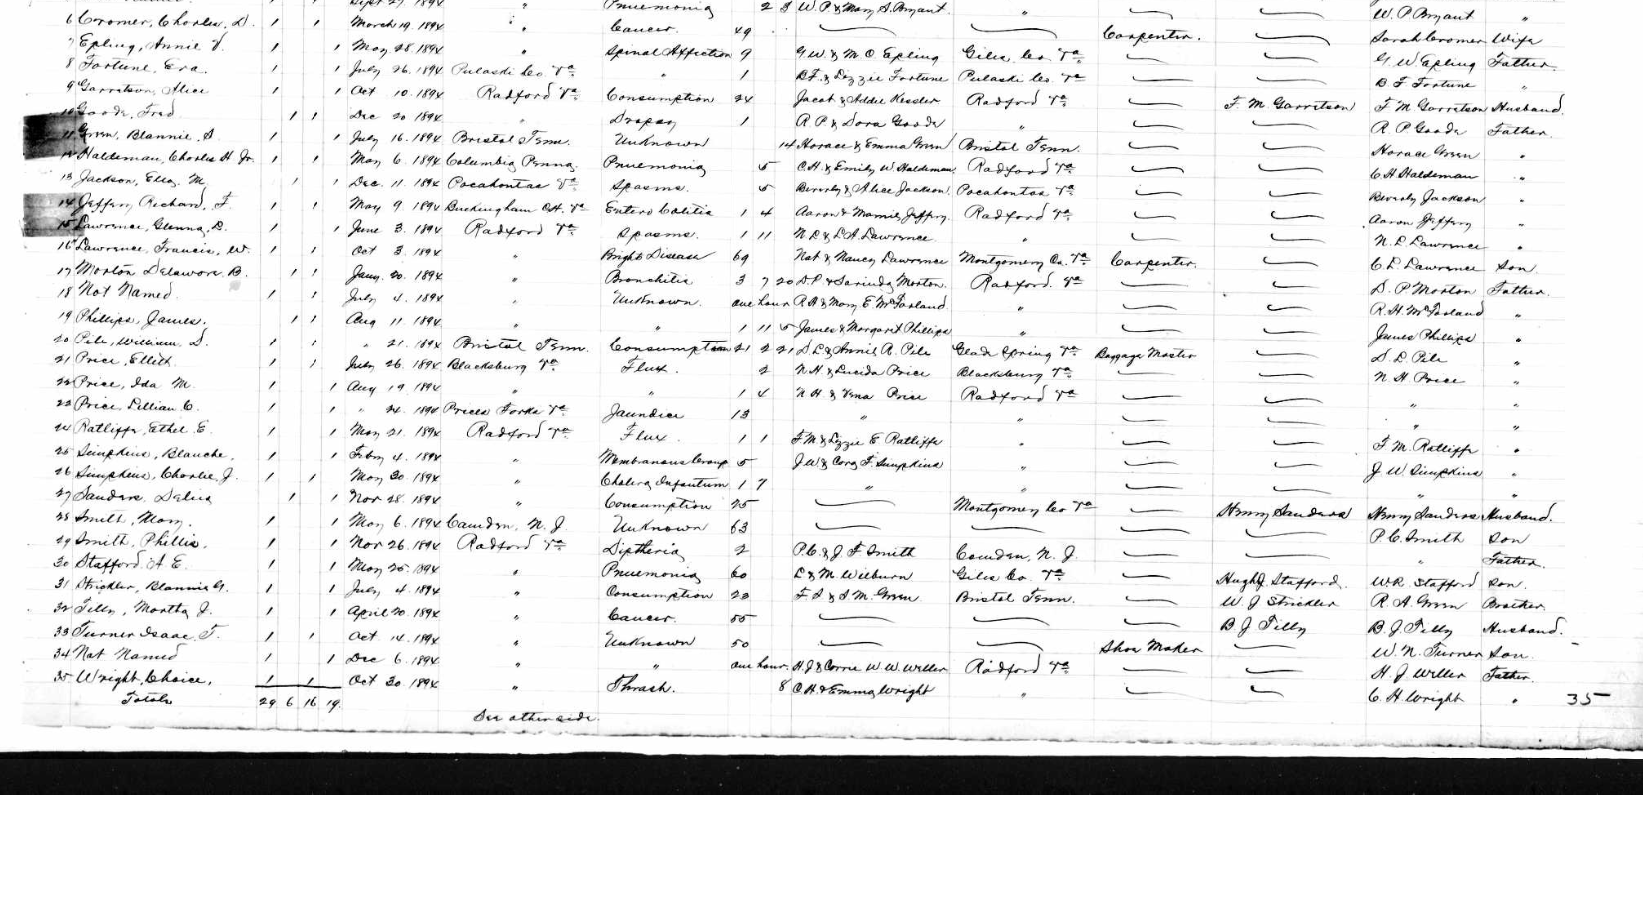 Sept 27. 1894 " Pneumonia 2 3 W. P. & Mary S. Bryant. " W. P. Bryant "
6 Cromer, Charles, D. 1 1 March 19. 1894 " Cancer. 49 Carpenter. Sarah Cromer Wife
7 Epling, Annie V. 1 1 May 28. 1894 " Spinal Affection 9 G. W. & M. C. Epling Giles Co. Va. G. W. Epling Father.
8 Fortune, Era. 1 1 July 26. 1894 Pulaski Co Va. " 1 B. F. & Lizzie Fortune Pulaski Co. Va. B. F. Fortune "
9 Garretson, Alice 1 1 Oct 10. 1894 Radford Va. Consumption 24 Jacob & Addie Kessler Radford Va. F. M. Garretson F. M. Garretson Husband.
10 Goode, Fred 1 1 Dec 20 1894 " Dropsy 1 R. P. & Dora Goode " R. P. Goode Father.
11 Green, Blannie S. 1 1 July 16. 1894 Bristol Tenn. Unknown 14 Horace & Emma Green Bristol Tenn. Horace Green "
12 Haldeman, Charles H Jr. 1 1 May 6. 1894 Columbia Penna. Pneumonia 5 C. H. & Emily W. Haldeman Radford Va. C. H. Haldeman "
13 Jackson, Eliza M. 1 1 Dec. 11. 1894 Pocahontas Va. Spasms. 5 Beverly & Alice Jackson. Pocahontas Va. Beverly Jackson "
14 Jeffery Richard, F. 1 1 May 9 1894 Buckingham C.H. Va. Entero Colitis 1 4 Aaron & Mamie Jeffery. Radford Va. Aaron Jeffery "
15 Lawrence, Glenna, D. 1 1 June 3. 1894 Radford Va. Spasms. 1 11 N. L. & L. A. Lawrence " N. L. Lawrence "
16 Lawrence, Francis, W. 1 1 Oct 3. 1894 " Brights Disease 69 Nat & Nancy Lawrence Montgomery Co. Va. Carpenter. C. L. Lawrence Son
17 Morton Delaware B. 1 1 Jany. 20. 1894 " Bronchitis 3 7 20 D. P. & Morton. Radford. Va. D. P. Morton Father.
18 Not Named. 1 1 July 4. 1894 " Unknown. one hour R. H. & Mary E McFarland " R. H. McFarland "
19 Phillips, James. 1 1 Aug 11. 1894 " " 1 11 5 James & Margaret Phillips " James Phillips "
20 Pile, William D. 1 1 " 21. 1894 Bristol Tenn. Consumption 21 2 21 D. L. & Annie R. Pile Glade Spring Va. Baggage Master D. L. Pile "
21 Price, Ellith. 1 1 July 26. 1894 Blacksburg Va. Flux. 2 N. H. & Lucida Price Blacksburg Va. N. H. Price "
22 Price, Ida M. 1 1 Aug 19 1894 " " 1 4 N. H. & Price Radford Va. " "
23 Price, Lillian C. 1 1 " 24. 1894 Prices Forks Va. Jaundice 13 " " " "
24 Ratliffe, Ethel E. 1 1 May 21. 1894 Radford Va. Flux. 1 1 F. M. & Lizzie E Ratliffe " F. M. Ratliffe "
25 Simpkins, Blanche. 1 1 Febry 4. 1894 " Membranous Croup 5 J. W. & Cora F. Simpkins " J. W. Simpkins "
26 Simpkins, Charlie, J. 1 1 May 30. 1894 " Cholera Infantum 1 7 " " " "
27 Sanders. Delia 1 1 Nov 28. 1894 " Consumption 25 Montgomery Co Va. Henry Sanders Henry Sanders Husband.
28 Smith, Mary. 1 1 May 6. 1894 Camden. N. J. Unknown 63 P. C. Smith Son
29 Smith, Phillis. 1 1 Nov 26. 1894 Radford Va. Diptheria 2 P. C. & J. F Smith Camden, N. J. " Father.
30 Stafford. A E. 1 1 May 25. 1894 " Pneumonia 60 L & M. Wilburn Giles Co. Va. Hugh J. Stafford. W. R. Stafford Son.
31 Strickler, Blannie G. 1 1 July 4. 1894 " Consumption 22 F. S & S. M. Green Bristol Tenn. W. J Strickler R. A. Green Brother.
32 Tilly, Martha J. 1 1 April 20. 1894 " Cancer. 55 B. J Tilly B. J. Tilly Husband.
33 Turner Isaac, T. 1 1 Oct. 14. 1894 " Unknown 50 Shoe Maker W. N. Turner Son.
34 Not Named 1 1 Dec 6. 1894 " " one hour. H. J. & Corrie W. W. Willer Radford Va. H. J. Willer Father.
35 Wright, Choice, 1 1 Oct 30. 1894 " Thrash. 8 C. H. & Emma Wright " C. H. Wright "
Totals 29 6 16 19. 35
See other side.